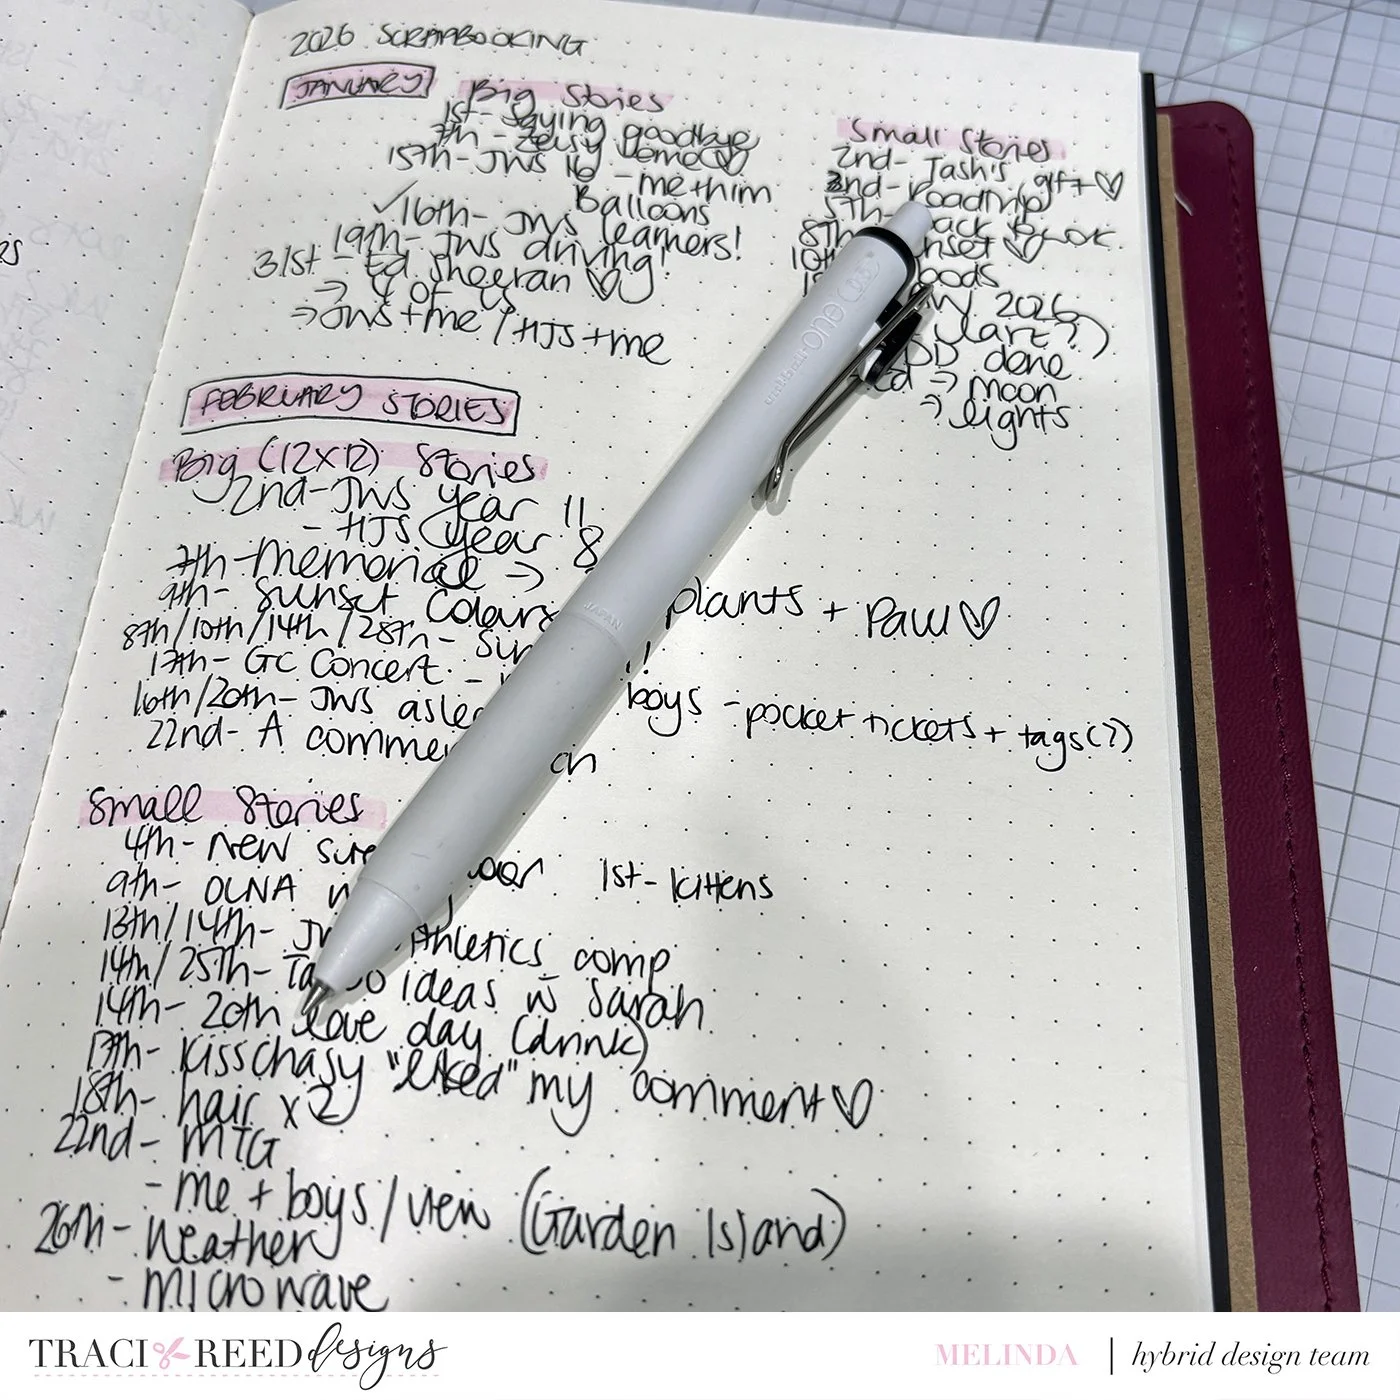 2026 SCRAPBOOKING
JANUARY
Big Stories
1st- Saying goodbye
7th - Zeisy Memo
15th- JWS 16 - me+him
Balloons
✓16th- JWS learners!
19th- JWS driving!
31st - Ed Sheeran ♡
→ 4 of us
→ JWS + me / HJS + me
Small Stories
2nd- Tash's gift ♡
2nd- Roadtrip
5th-
8th-
10th
2026
done
→ moon
→ lights
FEBRUARY STORIES
Big (12x12) Stories
2nd- JWS year 11
- HJS year 8
7th- memorial → plants + paw ♡
9th- Sunset Colours
8th/10th/14th/28th-
17th- GC Concert. - boys - pocket tickets + tags(?)
16th/20th- JWS
22nd- A
Small Stories
4th- New
1st- kittens
9th- OLNA
13th/14th- Athletics comp
14th/25th- ideas w Sarah
14th- 20th love day (drink)
17th- Kisschasy "liked" my comment ♡
18th- hair x 2
22nd- MTG
- me + boys / view (Garden Island)
26th- Weather
- microwave
ONE
JAPAN
TRACI REED designs
MELINDA | hybrid design team